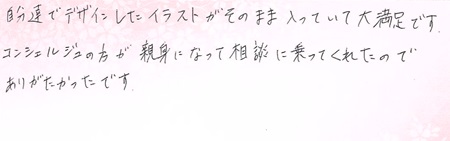 自分達でデザインしたイラストがそのまま入っていて大満足です.
コンシェルジュの方が親身になって相談に乗ってくれたので
ありがたかったです.